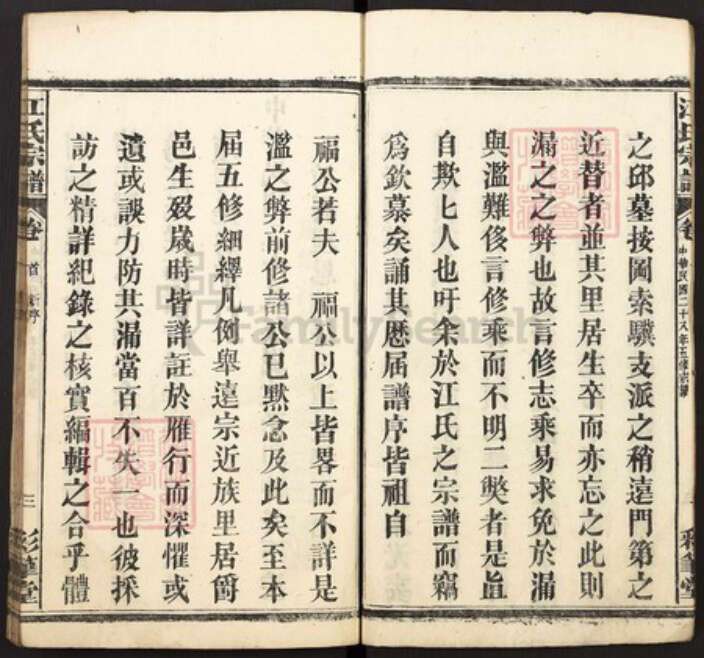 之邱墓按圖索驥支派之稍遠門第之
近替者並其里居生卒而亦忘之此則
漏之之弊也故言修志乘易求免於漏
與濫難侈言修乘而不明二獘者是眞
自欺七人也吁余於江氏之宗譜而竊
爲欽慕矣誦其歷届譜序皆祖自
江氏宗譜
卷
中華民國二十八年五修宗譜
彩筆堂
福公若夫 福公以上皆畧而不詳是
濫之弊前修諸公已黙念及此矣至本
届五修細繹凡例舉遠宗近族里居爵
邑生歿歲時皆詳註於雁行而深懼或
遺或誤力防其漏當百不失一也彼採
訪之精詳紀錄之核實編輯之合乎體
江氏宗譜
卷首
三
彩筆堂
FamilySearch